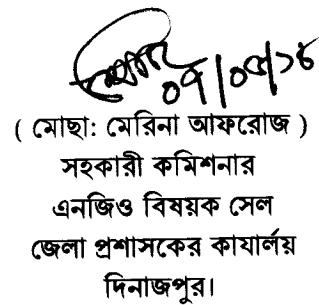 ০৭/০৫/১৪
( মোছা: মেরিনা আফরোজ )
সহকারী কমিশনার
এনজিও বিষয়ক সেল
জেলা প্রশাসকের কাযার্লয়
দিনাজপুর।